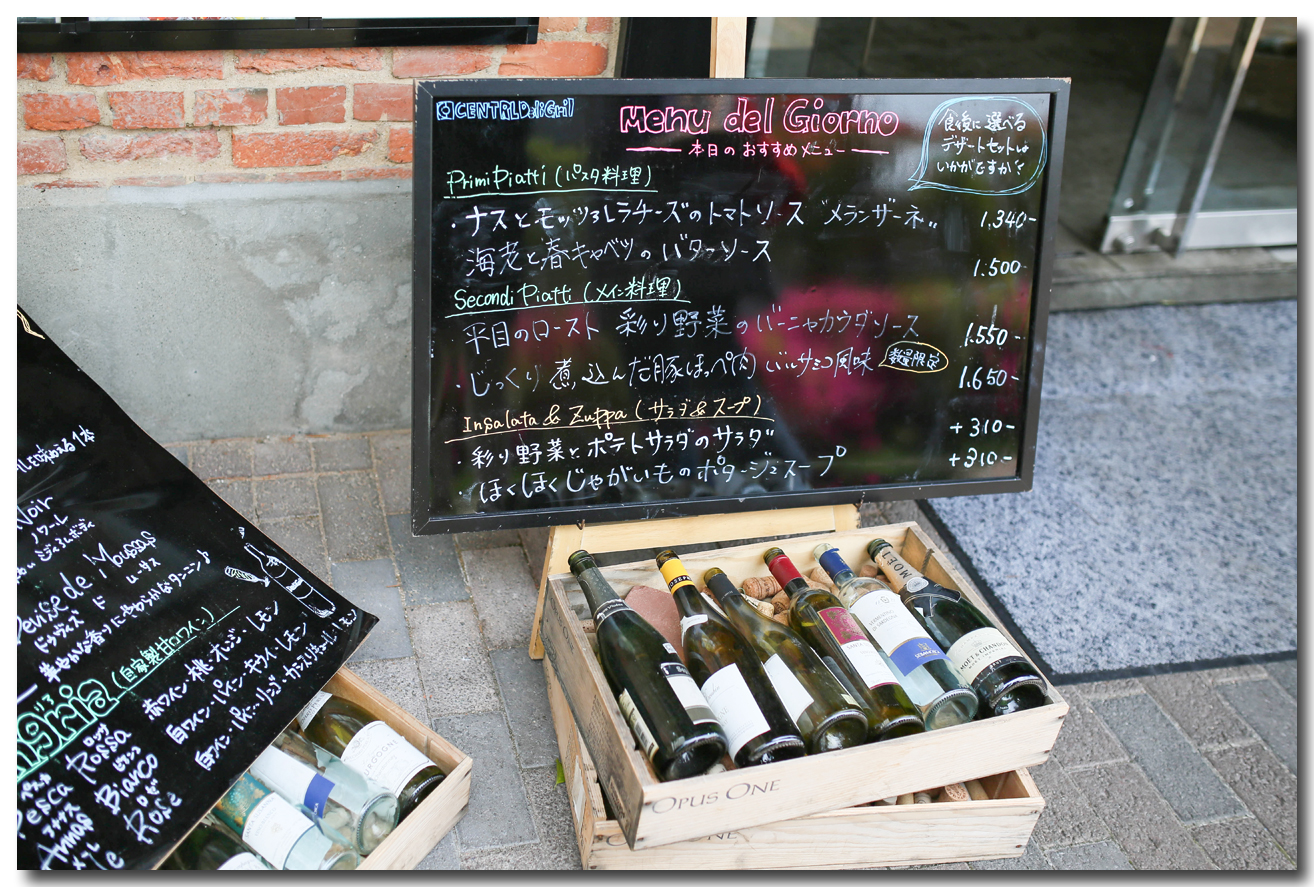 CENTRLDeliGril
Menu del Giorno
本日のおすすめメニュー
食後に選べる
デザートセットは
いかがですか？
Primi Piatti (パスタ料理)
・ナスとモッツァレラチーズのトマトソース〝メランザーネ〟 1.340-
海老と春キャベツのバターソース 1.500-
Secondi Piatti (メイン料理)
平目のロースト 彩り野菜のバーニャカウダソース 1.550-
・じっくり煮込んだ豚ほっぺ肉 バルサミコ風味 数量限定 1.650-
Insalata & Zuppa (サラダ&スープ)
・彩り野菜とポテトサラダのサラダ +310-
・ほくほくじゃがいものポタージュスープ +310-
味わえる1本
Noir
ノワール
ミディアムボディ
Devise de Moussas
ドゥヴィーズ ド ムーサス
華やかな香りにやわらかなタンニン♪
(自家製甘口ワイン)
ロッソ
Rossa 赤ワイン・桃・オレンジ・レモン
ビアンコ
Bianco 白ワイン・パイン・キウイ・レモン
ロゼ
Rosé
Pesca
MOËT
MOËT & CHANDON
OPUS ONE